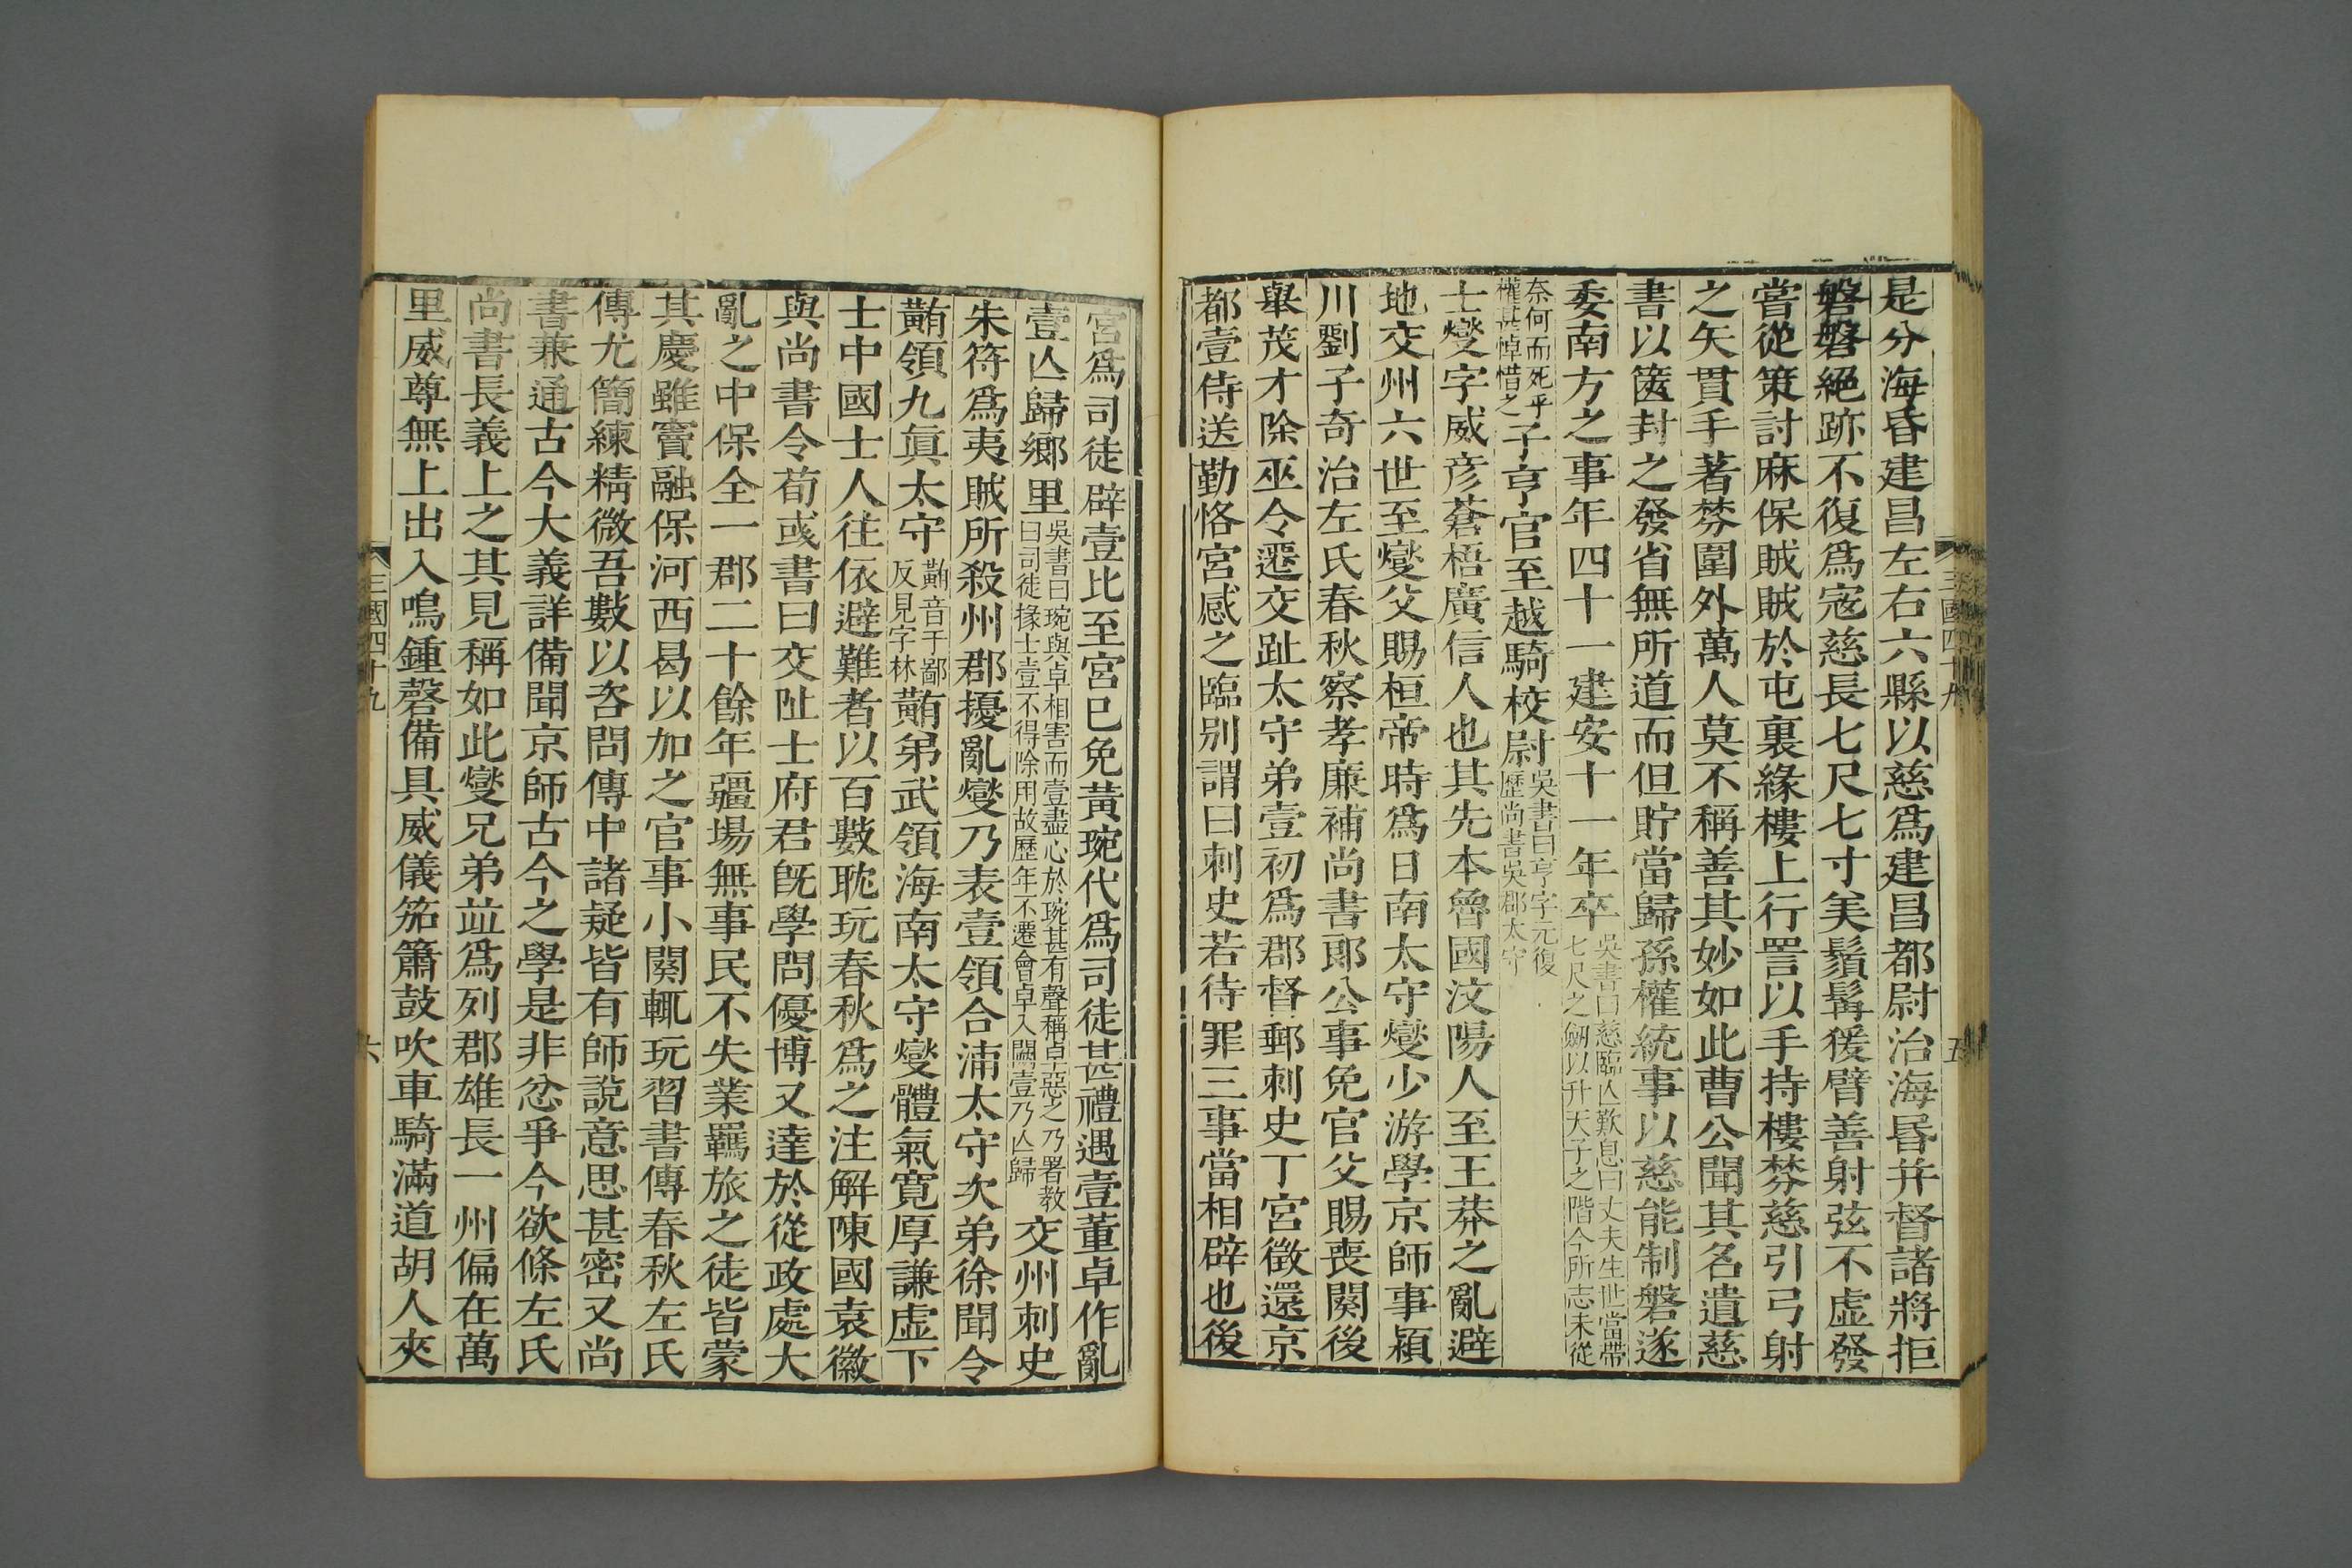 是分海昏建昌左右六縣以慈爲建昌都尉治海昬并督諸將拒
磐磐絕跡不復爲寇慈長七尺七寸美鬚髯猨臂善射弦不虛發
嘗從策討麻保賊賊於屯裏緣樓上行詈以手持樓棼慈引弓射
之矢貫手著棼圍外萬人莫不稱善其妙如此曹公聞其名遺慈
書以篋封之發省無所道而但貯當歸孫權統事以慈能制磐遂
委南方之事年四十一建安十一年卒吳書曰慈臨亾歎息曰丈夫生世當帶七尺之劒以升天子之階今所志未從
奈何而死乎權甚悼惜之子亨官至越騎校尉吳書曰亨字元復歷尚書吳郡太守
士燮字威彥蒼梧廣信人也其先本魯國汶陽人至王莽之亂避
地交州六世至燮父賜桓帝時爲日南太守燮少游學京師事穎
川劉子奇治左氏春秋察孝廉補尚書郎公事免官父賜喪闋後
舉茂才除巫令遷交趾太守弟壹初爲郡督郵刺史丁宮徵還京
都壹侍送勤恪宮感之臨別謂曰刺史若待罪三事當相辟也後
三國四十九
五
宮爲司徒辟壹比至宮已免黃琬代爲司徒甚禮遇壹董卓作亂
壹亾歸鄉里吳書曰琬與卓相害而壹盡心於琬甚有聲稱卓惡之乃署教曰司徒掾士壹不得除用故歷年不遷會卓入關壹乃亾歸交州刺史
朱符爲夷賊所殺州郡擾亂燮乃表壹領合浦太守次弟徐聞令
䵋領九眞太守䵋音于鄙反見字林䵋弟武領海南太守燮體氣寬厚謙虛下
士中國士人往依避難者以百數耽玩春秋爲之注解陳國袁徽
與尚書令荀彧書曰交阯士府君旣學問優博又達於從政處大
亂之中保全一郡二十餘年疆場無事民不失業羈旅之徒皆蒙
其慶雖竇融保河西曷以加之官事小闋輒玩習書傳春秋左氏
傳尤簡練精微吾數以咨問傳中諸疑皆有師說意思甚密又尚
書兼通古今大義詳備聞京師古今之學是非忿爭今欲條左氏
尚書長義上之其見稱如此燮兄弟並爲列郡雄長一州偏在萬
里威尊無上出入鳴鍾磬備具威儀笳簫鼓吹車騎滿道胡人夾
三國四十九
六